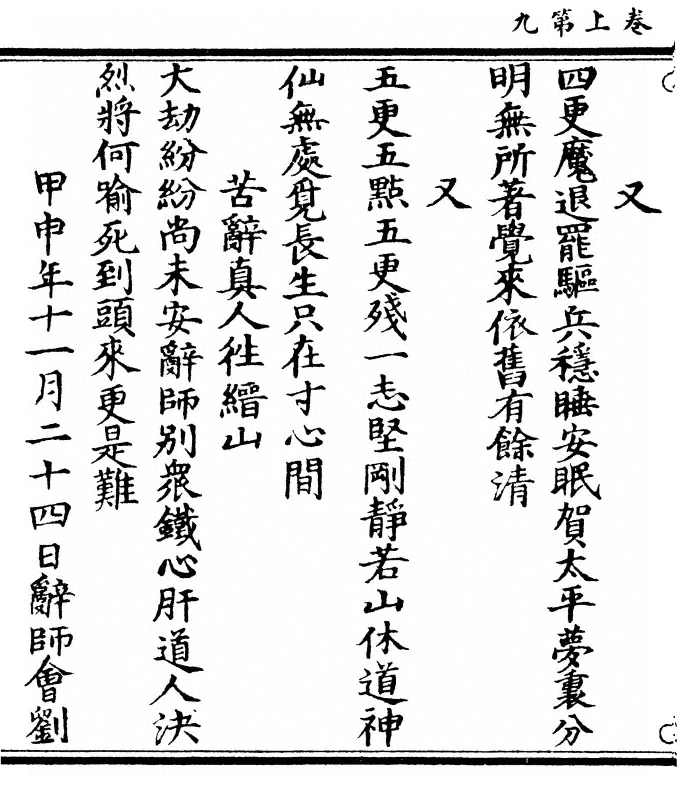 卷上第九
又
四更魔退罷驅兵穩睡安眠賀太平夢裏分
明無所著覺來依舊有餘清
又
五更五點五更殘一志堅剛靜若山休道神
仙無處覓長生只在寸心間
苦辭真人徃縉山
大劫紛紛尚未安辭師別衆鐵心肝道人決
烈將何喻死到頭來更是難
甲申年十一月二十四日辭師會劉